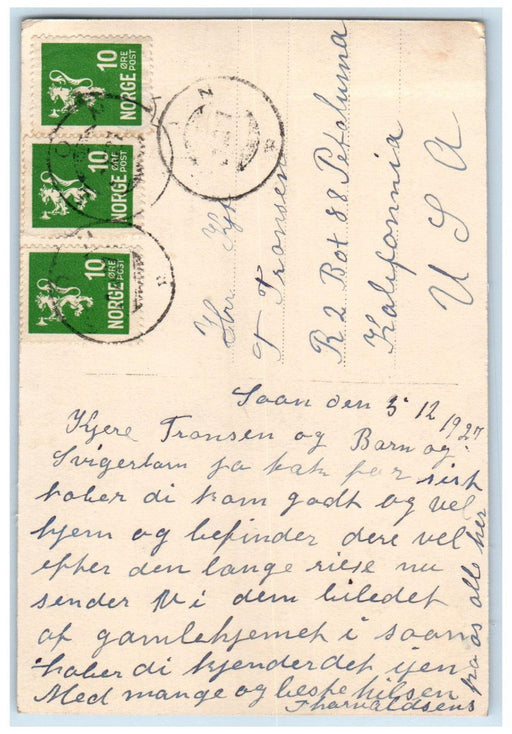 10 ØRE NORGE POST
10 ØRE NORGE POST
10 ØRE NORGE POST
Transen
R 2 Box 88 Petaluma
Kalifornnia
U S A
Saan den 5 12 1927
Kjere Transen og Barn og
Svigerbarn ja tak for sist
haber di kom godt og vel
hjem og befinder dere vel
efter den lange riese nu
sender Vi dem biledet
af gamlehjemet i saan
haber di kjenderdet ijen
Med mange og beste hilsen
fra os alle her
Thorvaldsens